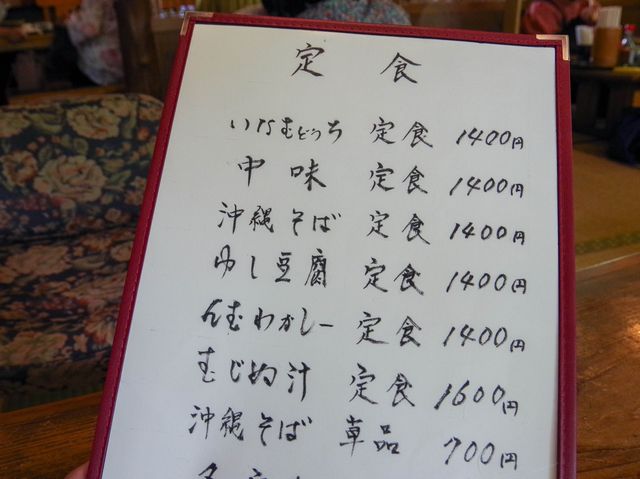 定食
いなむどっち 定食 1400円
中味 定食 1400円
沖縄そば 定食 1400円
ゆし豆腐 定食 1400円
んむわかしー 定食 1400円
むじぬ汁 定食 1600円
沖縄そば 単品 700円